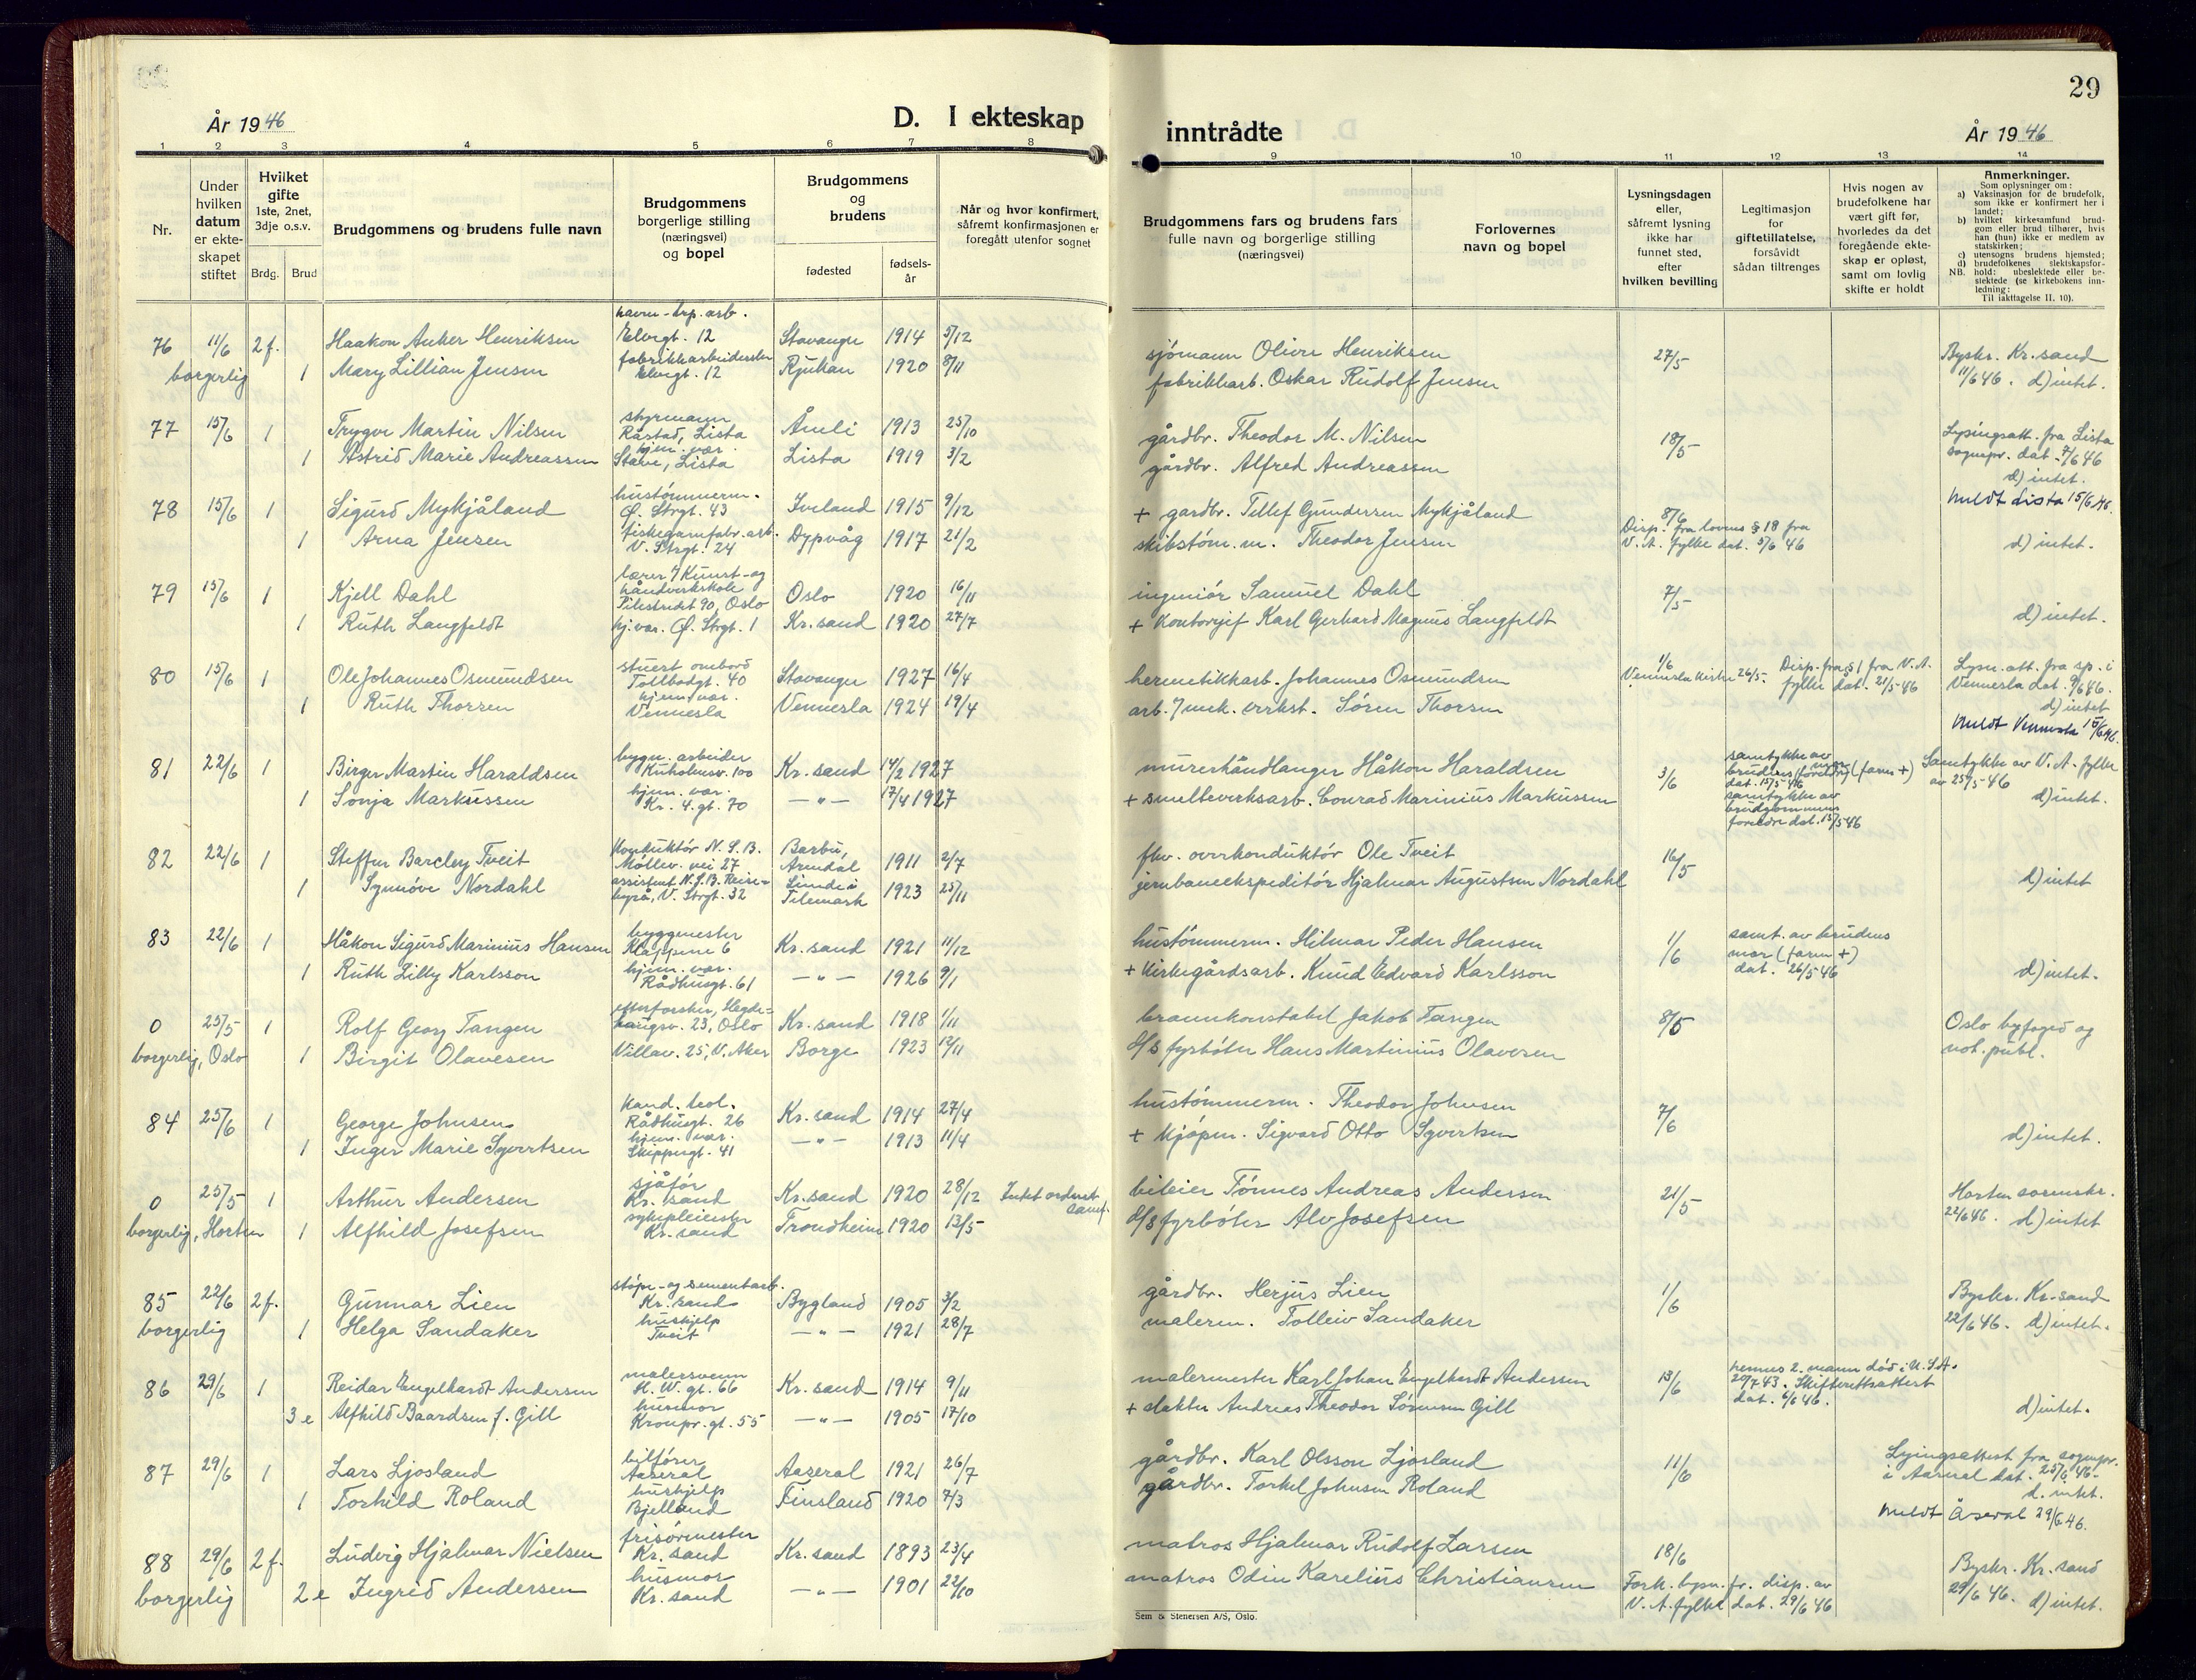 29
År 1946
D. I ekteskap
inntrådte
År 1946
1 2 3 4 5 6 7 8 9 10 11 12 13 14
Nr.
Under
hvilken
datum
er ekte-
skapet
stiftet
Hvilket
gifte
1ste, 2net,
3dje o.s.v.
Brdg. Brud
Brudgommens og brudens fulle navn
Brudgommens
borgerlige stilling
(næringsvei)
og bopel
Brudgommens
og
brudens
fødested
fødsels-
år
Når og hvor konfirmert,
såfremt konfirmasjonen er
foregått utenfor sognet
Brudgommens fars og brudens fars
fulle navn og borgerlige stilling
(næringsvei)
Forlovernes
navn og bopel
Lysningsdagen
eller,
såfremt lysning
ikke har
funnet sted,
efter
hvilken bevilling
Legitimasjon
for
giftetillatelse,
forsåvidt
sådan tiltrenges
Hvis nogen av
brudefolkene har
vært gift før,
hvorledes da det
foregående ekte-
skap er opløst,
samt om lovlig
skifte er holdt
Anmerkninger.
Som oplysninger om:
a) Vaksinasjon for de brudefolk,
som ikke er konfirmert her i
landet;
b) hvilket kirkesamfund brud-
gom eller brud tilhører, hvis
han (hun) ikke er medlem av
statskirken;
c) utensogns brudens hjemsted;
d) brudefolkenes slektskapsfor-
hold: ubeslektede eller be-
slektede (se kirkebokens inn-
ledning:
NB. Til iakttagelse II. 10).
havn-trp. arb.
76 11/6 2f. Haakon Anker Henriksen Elvegt. 12 Stavanger 1914 5/12 sjømann Oliver Henriksen 27/5 Byskr. Kr.sand
borgerlig 1 Mary Lillian Jensen fabrikkarbeiderske Elvegt. 12 Rjukan 1920 8/11 fabrikkarb. Oskar Rudolf Jensen 11/6 46. d) intet.
77 15/6 1 Trygve Martin Nilsen styrmann Råstad, Lista Åmli 1913 25/10 gårdbr. Theodor M. Nilsen 18/5 Lysingsatt. fra Lista
sognepr. dat. 7/6 46
1 Astrid Marie Andreassen hjem. vær. Stave, Lista Lista 1919 3/2 gårdbr. Alfred Andreassen d) intet.
meldt Lista 15/6 46.
78 15/6 1 Sigurd Mykjåland hustømmerm. Ø. Strgt. 43 Iveland 1915 9/12 + gardbr. Tellef Gundersen Mykjåland 8/6
Disp. fra lovens § 18 fra
V. A. fylke dat. 5/6 46
1 Arna Jensen fiskegarnfabr. arb. V. Strgt. 24 Dypvåg 1917 21/2 skibstøm. m. Theodor Jensen d) intet.
79 15/6 1 Kjell Dahl lærer v/ Kunst- og håndverkskole Pilestredet 90, Oslo Oslo 1920 16/11 ingeniør Samuel Dahl 7/5
1 Ruth Langfeldt hj. vær. Ø. Strgt. 1 Kr.sand 1920 27/7 + Kontorsjef Karl Gerhard Magnus Langfeldt d) intet.
80 15/6 1 Ole Johannes Osmundsen stuert ombord Tollbodgt. 40 Stavanger 1927 16/4 hermetikkarb. Johannes Osmundsen 1/6
Vennesla kirke 26/5. Disp. fra § 1 fra V. A.
fylke dat. 21/5 46 Lysn. att. fra sp. i
Vennesla dat. 9/6 46.
1 Ruth Thorsen hjem. vær. Vennesla Vennesla 1924 19/4 arb. v/ mek. verkst. Søren Thorsen d) intet
meldt Vennesla 15/6 46.
81 22/6 1 Birger Martin Haraldsen bygn. arbeider Kuholmsv. 100 Kr.sand 14/2 1927 murerhåndlanger Håkon Haraldsen 3/6 samtykke av
brudens mor (faren +)
dat. 15/5-46
samtykke av
brudgommens
foreldre dat. 15/5 46 Samtykke av V. A. fylke
av 25/5-46
1 Sonja Markussen hjem. vær. Kr. 4. gt. 70 — " — 17/4 1927 + smelteverksarb. Conrad Marinius Markussen d) intet.
82 22/6 1 Steffen Barcley Tveit Konduktør N. S. B. Møllev. vei 27 Barbu, Arendal 1911 2/7 fhv. overkonduktør Ole Tveit 16/5
1 Synnøve Nordahl assistent N.S.B. Reise-
byrå, V. Strgt. 32 Lunde i Telemark 1923 25/11 jernbaneekspeditør Hjalmar Augustsen Nordahl d) intet
83 22/6 1 Håkon Sigurd Marinius Hansen byggmester Klappene 6 Kr. sand 1921 11/12 hustømmerm. Hilmar Peder Hansen 1/6 samt. av brudens
mor (faren +)
dat. 26/5 46
1 Ruth Lilly Karlsson hjem. vær. Rådhusgt. 61 — " — 1926 9/1 + Kirkegårdsarb. Knud Edvard Karlsson d) intet.
0 25/5 1 Rolf Georg Tangen etterforsker, Hegde-
haugsv. 23, Oslo Kr. sand 1918 1/11 brannkonstabel Jakob Tangen 8/5 Oslo byfoged og
not. publ.
borgerlig, Oslo 1 Birgit Olavesen Villav. 25, V. Aker Borge 1923 12/11 d/s fyrbøter Hans Martinius Olavesen
84 25/6 1 George Johnsen kand. teol. Rådhusgt. 26 Kr. sand 1914 27/4 hustømmerm. Theodor Johnsen 7/6
1 Inger Marie Syvertsen hjem. vær. Skippergt. 41 — " — 1913 11/4 + Kjøpm. Sigvard Otto Syvertsen d) intet.
0 25/5 1 Arthur Andersen sjåfør Kr. sand Kr.sand 1920 28/12 Intet ordnet
samf. bileier Tønnes Andreas Andersen 21/5 Horten sorenskr.
22/6 46. d) intet
borgerlig, Horten 1 Alfhild Josefsen sykepleierske Kr. sand Trondheim 1920 12/5 d/s fyrbøter Alv Josefsen
85 22/6 2f. Gunnar Lien støpe- og sementarb. Kr. sand Bygland 1905 3/2 gårdbr. Herjus Lien 1/6 Byskr. Kr.sand
borgerlig 1 Helga Sandaker hushjelp Tveit — " — 1921 28/7 malerm. Tolleiv Sandaker 22/6 46. d) intet.
86 29/6 1 Reidar Engelhardt Andersen malersvenn H. W. gt. 66 Kr. sand 1914 9/11 malermester Karl Johan Engelhardt Andersen 13/6 hennes 2. mann død i U.S.A.
20/7 43. Skifterettsattest
dat. 6/6 46.
3 e Alfhild Baardsen f. Gill husmor Kronpr. gt. 55 — " — 1905 17/10 + slakter Andreas Theodor Sørensen Gill d) intet.
87 29/6 1 Lars Ljosland bilfører Aaseral Aaseral 1921 26/7 gårdbr. Karl Olsson Ljosland 11/6 Lysingsattest fra sognepr.
i Aaseral dat. 25/6 46.
1 Torhild Roland hushjelp Bjelland Finsland 1920 7/3 gårdbr. Torkel Johnsen Roland d. intet.
meldt Åseral 29/6 46.
88 29/6 2f. Ludvig Hjalmar Nielsen frisørmester Kr. sand Kr. sand 1893 23/4 matros Hjalmar Rudolf Larsen 18/6 Byskr. Kr. sand
29/6 46. d) intet.
borgerlig 2 e Ingrid Andersen husmor Kr. sand — " — 1901 22/10 matros Odin Karelius Christiansen Fork. lysn. fr. disp. av
V. A. fylke dat. 29/6 46
Sem & Stenersen A/S, Oslo.